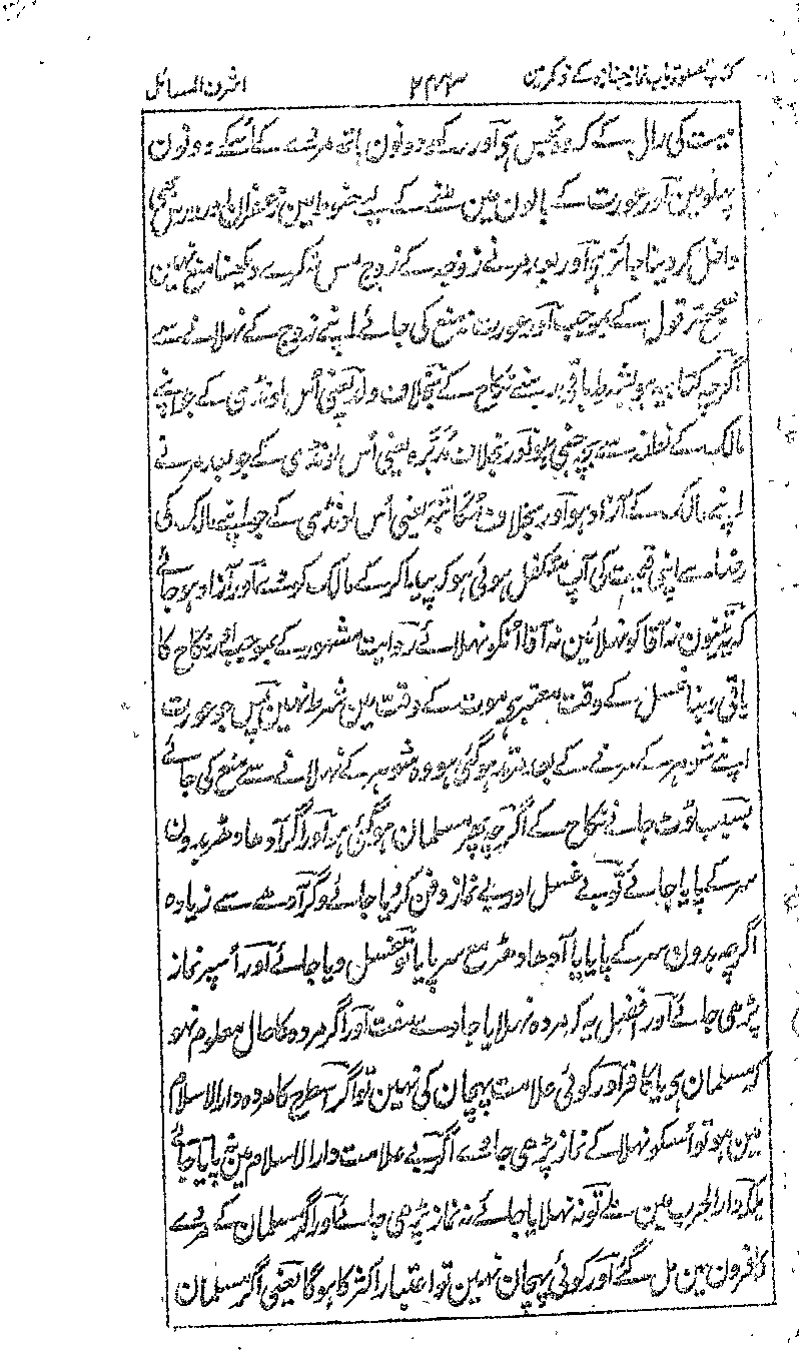 کتاب صلوۃ باب نماز جنازہ کے ذکر مین ۲۴۳ اشرف المسائل
میت کی رال سے کہ وہ نجس ہی آور رکھے دونون ہاتھ مردے کے اُسکے دونون
پہلو مین آور عورت کے بالون مین ملنے کے لیے حنوط مین زعفران اور ورس بھی
داخل کردینا جائز ہی آور بعد مرنے زوجہ کے زوج مس نکرے دیکھنا منع نہین
صحیح تر قول کے بموجب آور عورت نہ منع کی جائے اپنے زوج کے نہلانے سے
اگرچہ کتابیہ ہو بشرط باقی رہنے نکاح کے بخلاف ام ولد یعنی اُس لونڈی کے جو اپنے
مالک کے نطفہ سے بچہ جنی ہو آور بخلاف مُدبَّرہ یعنی اُس لونڈی کے جو بعد مرنے
اپنے مالک کے آزاد ہو آور بخلاف مُکاتَبہ یعنی اُس لونڈی کے جو اپنے مالک کی
رضا سے اپنی قیمت کی آپ متکفل ہوئی ہو کہ پیدا کرکے مالک کو دے آور آزاد ہو جائے
کہ یہ تینون نہ آقا کو نہلائین نہ آقا اُنکو نہلائے روایت مشہور کے بموجب آور نکاح کا
باقی رہنا غسل کے وقت معتبر ہی موت کے وقت مین شرط نہین پس جو عورت
اپنے شوہر کے مرنے کے بعد مرتد ہو گئی ہو وہ شوہر کے نہلانے سے منع کی جائے
بسبب ٹوٹ جانے نکاح کے اگرچہ پھر مسلمان ہو گئی ہو آور اگر آدھا دھڑ بدون
سر کے پایا جائے تو بے غسل اور بے نماز دفن کر دیا جائے وگر آدھے سے زیادہ
اگرچہ بدون سر کے پایا یا آدھا دھڑ مع سر پایا تو غسل دیا جائے آور اُسپر نماز
پڑھی جائے آور افضل یہ کہ مردہ نہلایا جاوے مفت آور اگر مردہ کا حال معلوم نہو
کہ مسلمان ہی یا کافر آور کوئی علامت پہچان کی نہین تو اگر اسطرح کا مردہ دارالاسلام
مین ہو تو اُسکو نہلا کے نماز پڑھی جائے اگر بے علامت دارالاسلام مین نہ پایا جائے
بلکہ دارالحرب مین ملے تو نہ نہلایا جائے نہ نماز پڑھی جائے آور اگر مسلمان کے مردے
کافرون مین مل گئے آور کوئی پہچان نہین تو اعتبار اکثر کا ہوگا یعنی اگر مسلمان